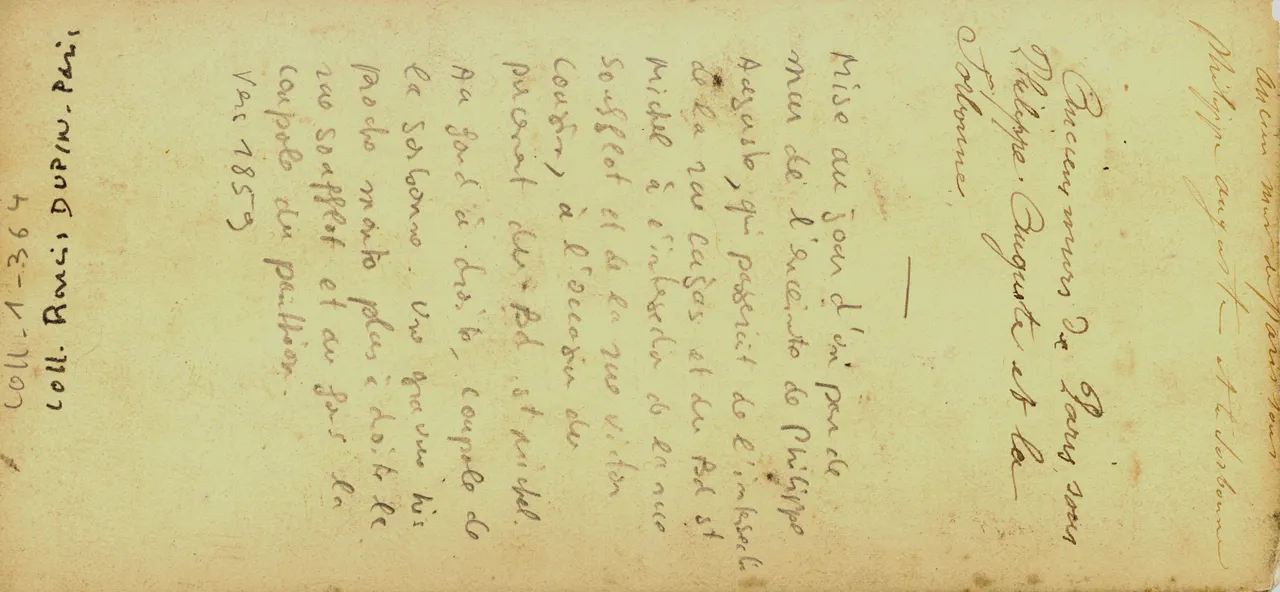 Ancien mur de Paris sous
Philippe auguste et la Sorbonne
Anciens murs de Paris, sous
Philippe-Auguste et la
Sorbonne.
Mise au jour d'un pan de
mur de l'enceinte de Philippe
Auguste, qui passait de l'intersecti
de la rue Cujas et du Bd st
Michel à l'intersectio de la rue
Soufflot et de la rue Victor
Cousin, à l'occasion du
percement du Bd st Michel.
Au fond à droite, coupole de
la Sorbonne. Une gravure très
proche monte plus à droite la
rue Soufflot et au fond la
coupole du panthéon.
Vers 1859
Coll. Francis DUPIN. Paris
Coll-1-364